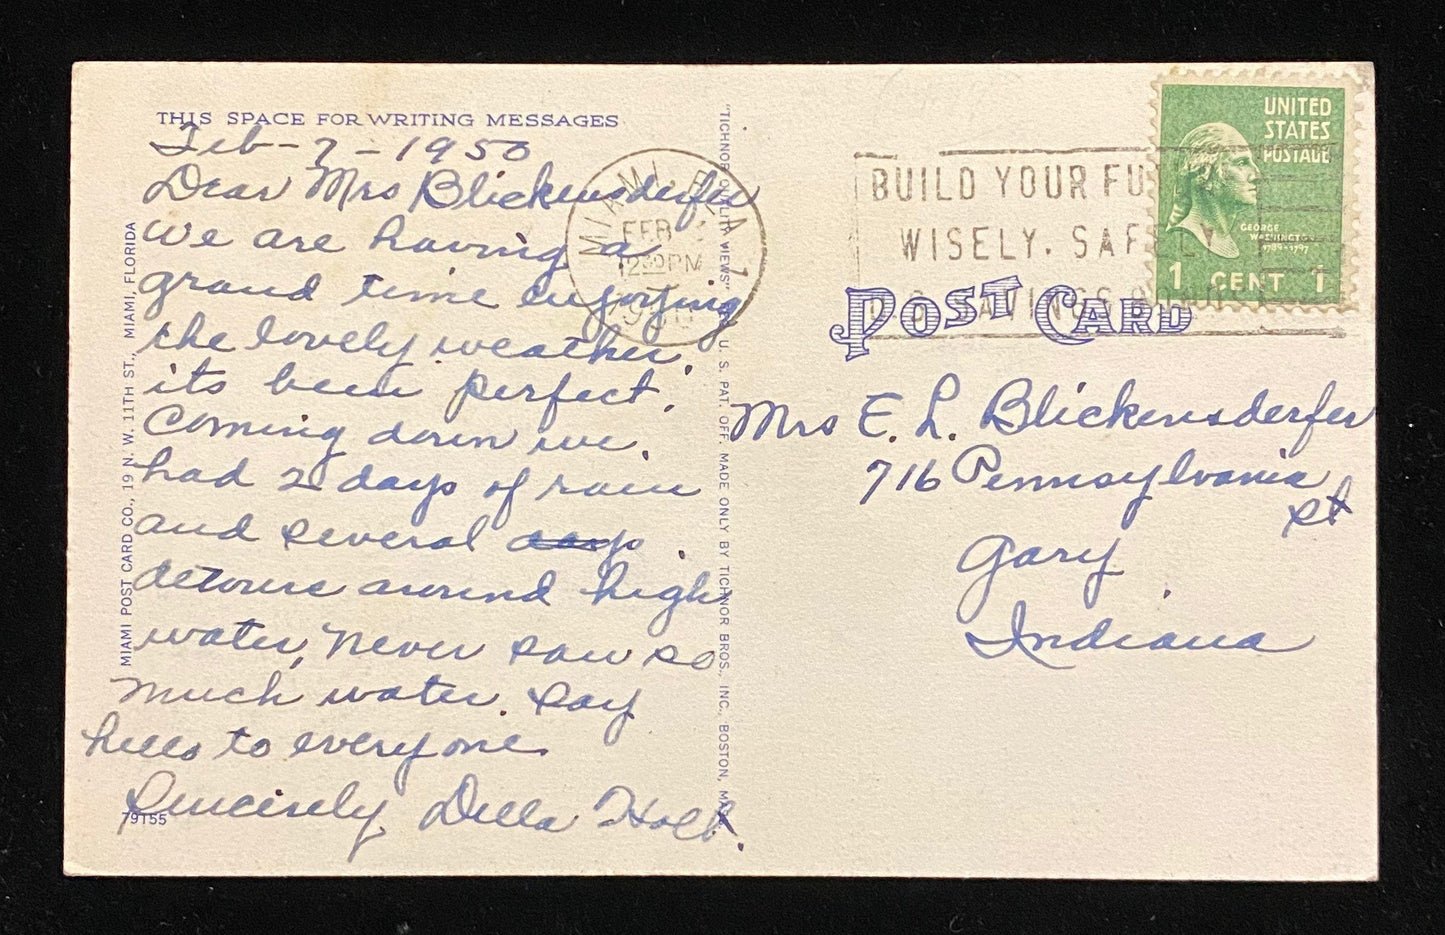 THIS SPACE FOR WRITING MESSAGES
Feb-7-1950
Dear Mrs Blickensderfer
We are having a
grand time enjoying
the lovely weather,
its been perfect.
Coming down we
had 2 days of rain
and several
detours around high
water, never saw so
much water. Say
hello to everyone
Sincerely Della
79155
MIAMI POST CARD CO., 19 N. W. 11TH ST., MIAMI, FLORIDA
"TICHNOR QUALITY VIEWS" U. S. PAT. OFF. MADE ONLY BY TICHNOR BROS., INC., BOSTON, MASS.
MIAMI, FLA.
FEB
12 30 PM
1950
BUILD YOUR FU
WISELY, SAFELY
U.S. SAVINGS BONDS
UNITED
STATES
POSTAGE
GEORGE
WASHINGTON
1789-1797
1 CENT 1
POST CARD
Mrs E. L. Blickensderfer
716 Pennsylvania
st
Gary
Indiana